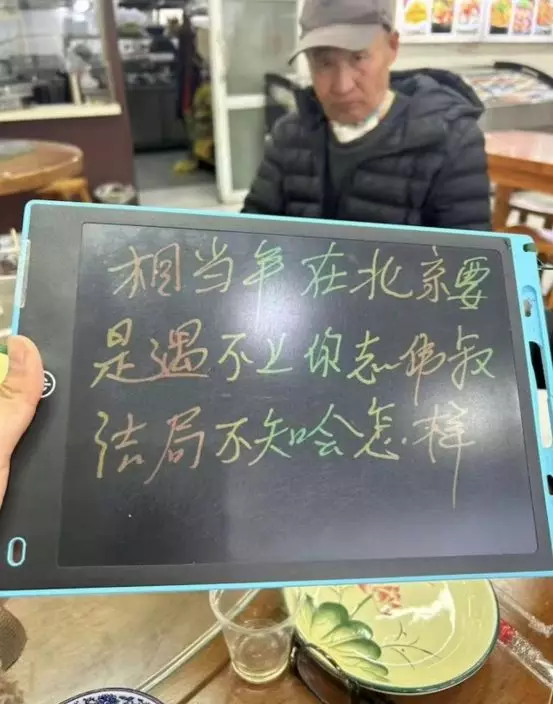 相当年在北京要
是遇不上你志伟叔
结局不知会怎样